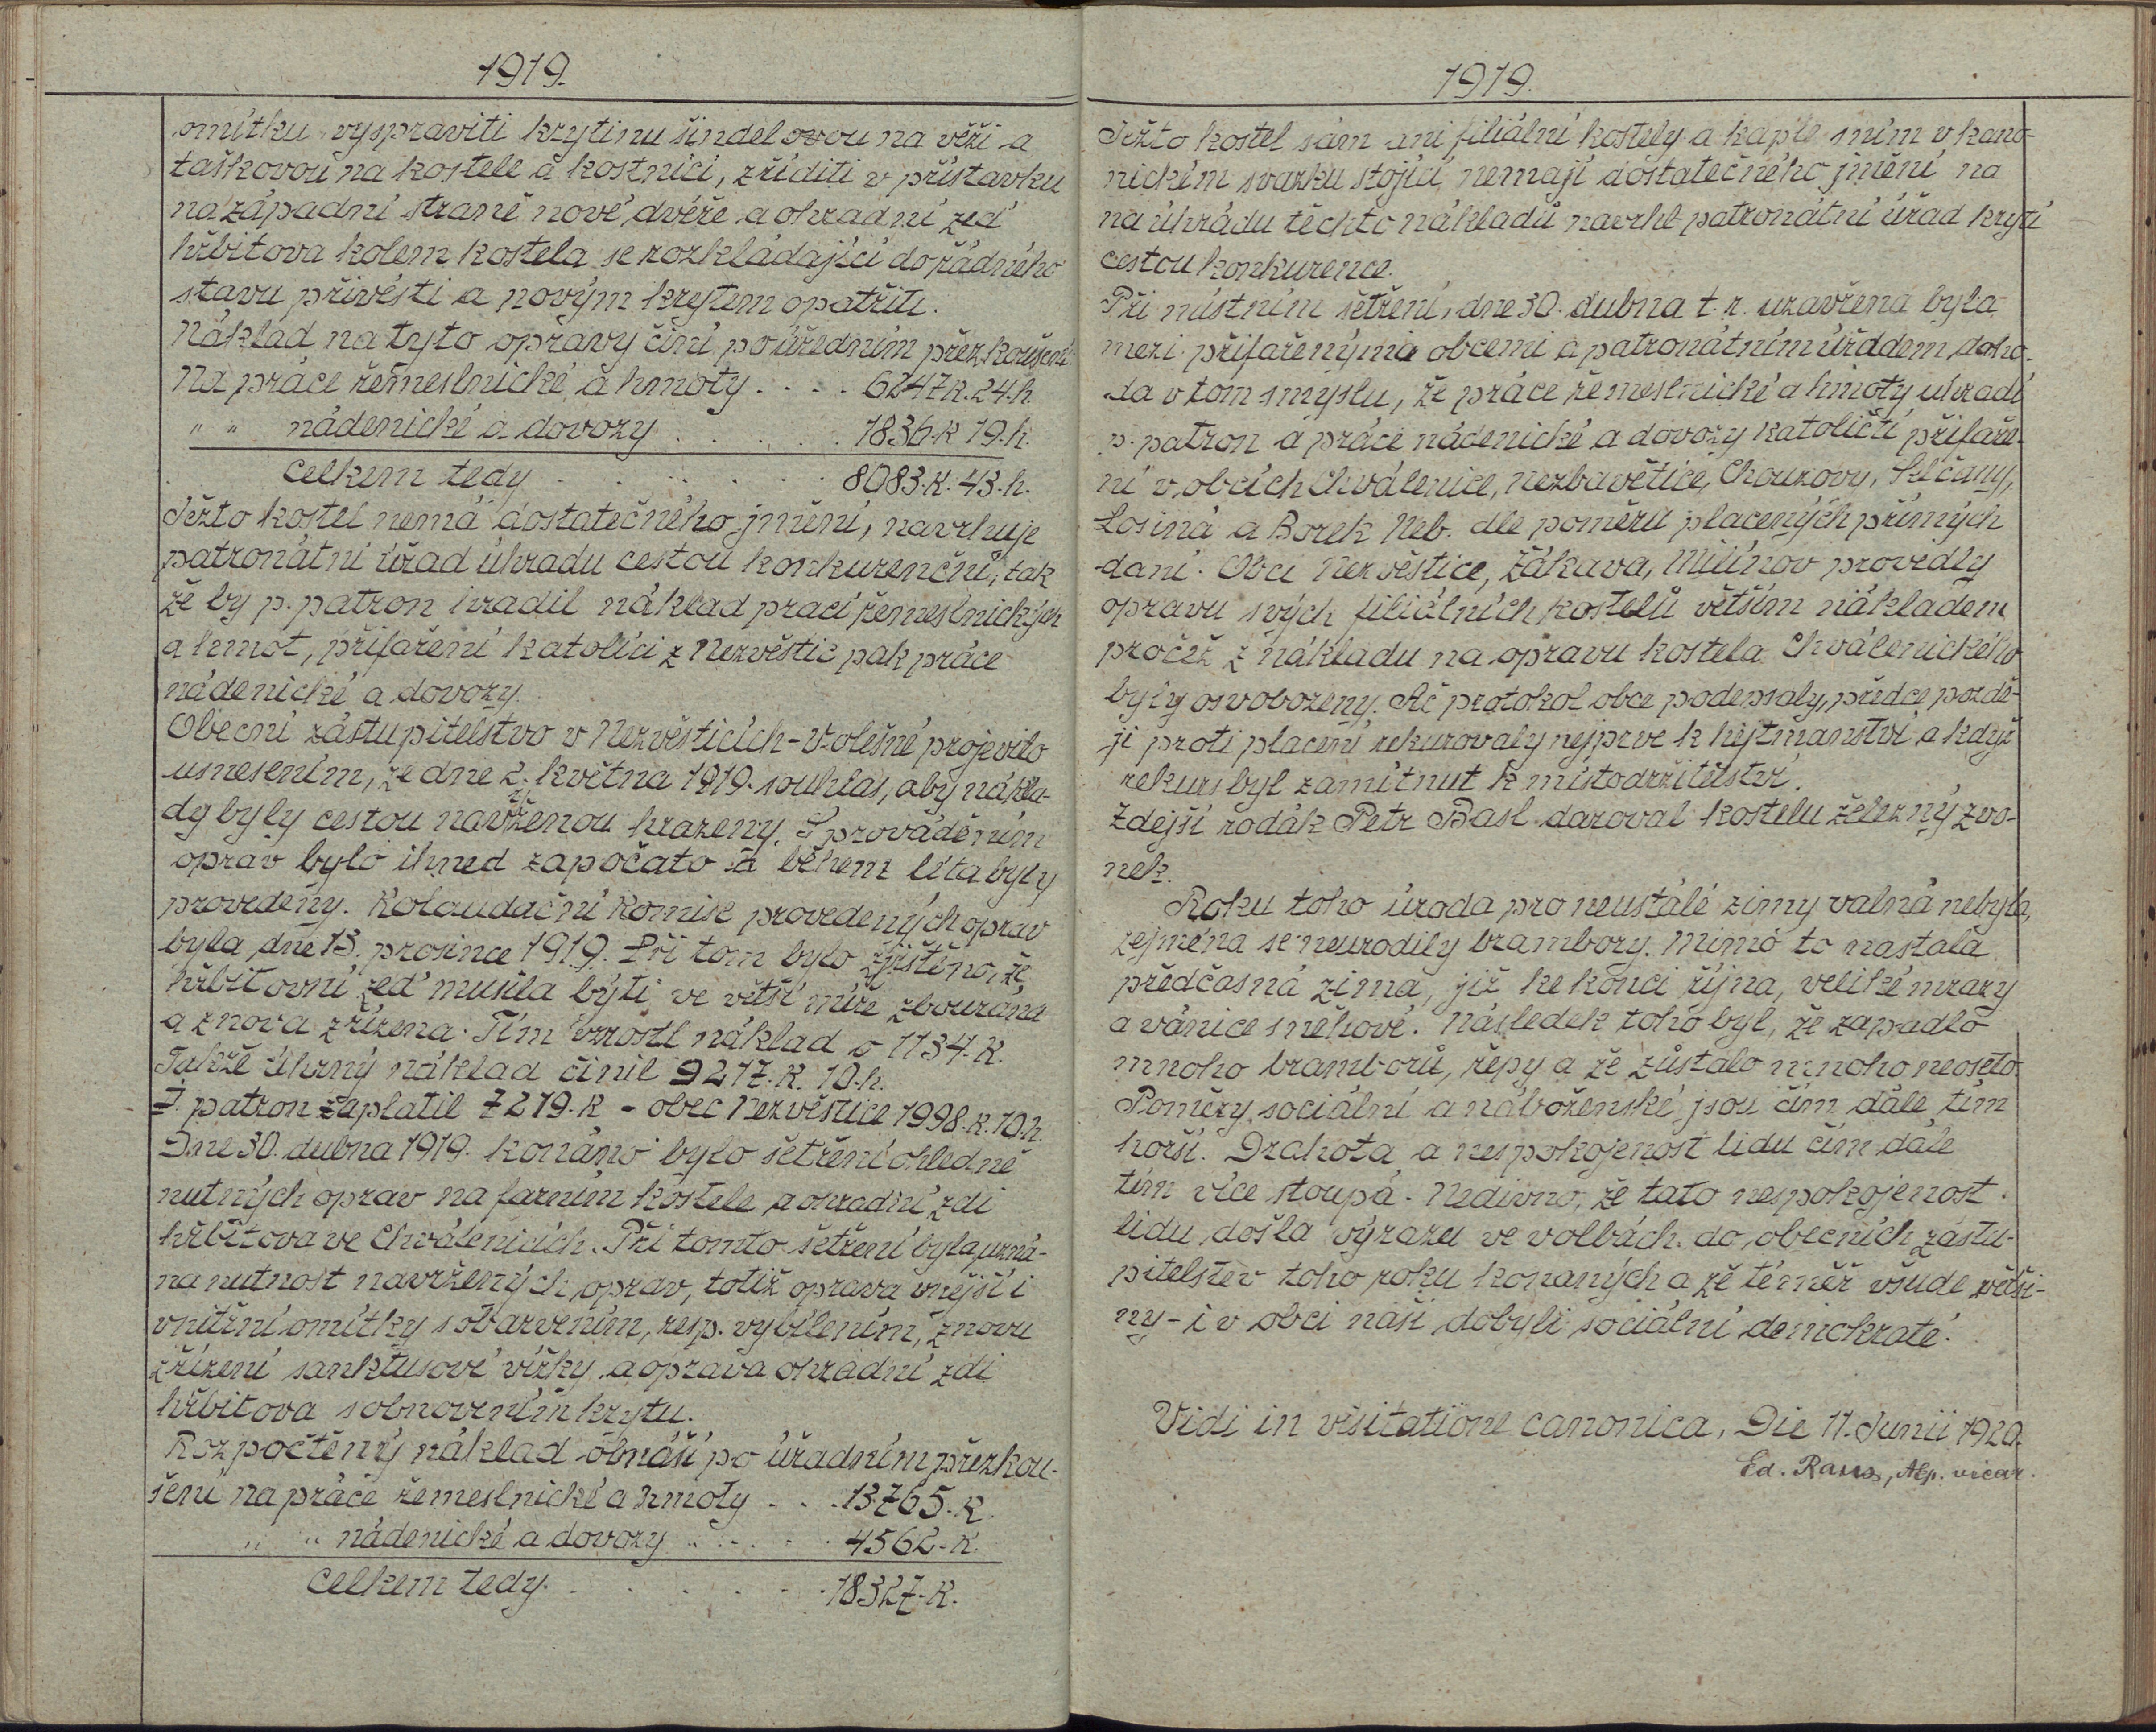 1919.
omítku vyspraviti krytinu šindelovou na věži a
taškovou na kostele a kostnici, zříditi v přístavku
na západní straně nové dvéře a ohradní zeď
hřbitova kolem kostela se rozkládající do řádného
stavu přivésti a novým krytem opatřiti.
Náklad na tyto opravy činí po úředním přezkoušení:
Na práce řemeslnické a hmoty . . . . 6247 K. 24. h.
" " nádenické a dovozy . . . . . . 1836. K 19. h.
celkem tedy . . . . . . . 8083. K. 43. h.
Ježto kostel nemá dostatečného jmění, navrhuje
patronátní úřad úhradu cestou konkurenční, tak
že by p. patron hradil náklad prací řemeslnických
a hmot, přifaření katolíci z Nezvěstic pak práce
nádenické a dovozy.
Obecní zástupitelstvo v Nezvěsticích-Volešné projevilo
usnesením, ze dne 2. května 1919. souhlas, aby nákla-
dy byly cestou navrženou hrazeny. S prováděním
oprav bylo ihned započato a během léta byly
provedeny. Kolaudační komise provedených oprav
byla dne 13. prosince 1919. Při tom bylo zjištěno, že
hřbitovní zeď musila býti ve větší míře zbourána
a znova zřízena. Tím vzrostl náklad o 1134. K.
Takže úhrný náklad činil 9217. K. 10. h.
P. patron zaplatil 7219. K - obec Nezvěstice 1998. K. 10. h.
Dne 30. dubna 1919. konáno bylo šetření ohledně
nutných oprav na farním kostele a ohradní zdi
hřbitova ve Chválenicích. Při tomto šetření byla uzná-
na nutnost navržených oprav, totiž oprava vnější i
vnitřní omítky s obarvením, resp. vybílením, znovu
zřízení sanktusové vížky a oprava ohradní zdi
hřbitova s obnovením krytu.
Rozpočtěný náklad obnáší po úřadním přezkou-
šení na práce řemeslnické a hmoty . . . 13.765. K.
" " nádenické a dovozy . . . . . 4562. K.
Celkem tedy. . . . . . . 18327. K.
1919.
Ježto kostel sám ani filiální kostely a kaple s ním v kano-
nickém svazku stojící, nemají dostatečného jmění na
na úhradu těchto nákladů navrhl patronátní úřad krytí
cestou konkurence.
Při místním šetření, dne 30. dubna t. r. uzavřena byla
mezi přifařenýma obcemi a patronátním úřadem doho-
da v tom smyslu, že práce řemeslnické a hmoty uhradí
p. patron a práce nádenické a dovozy katoličtí přifaře-
ní v obcích Chválenice, Nezbavětice, Chouzovy, Želčany,
Losiná a Borek Neb. dle poměru placených přímých
daní. Obce Nezvěstice, Žákava, Milínov provedly
opravu svých filiálních kostelů větším nákladem
pročež z nákladu na opravu kostela Chválenického
byly osvobozeny. Ač protokol obce podepsaly, předce pozdě-
ji proti placení rekurovaly nejprve k hejtmanství a když
rekurs byl zamítnut k místodržitelství.
Zdejší rodák Petr Basl daroval kostelu železný zvo-
nek.
Roku toho úroda pro neustálé zimy valná nebyla,
zejména se neurodily brambory. Mimo to nastala
předčasná zima, již ke konci října, veliké mrazy
a vánice sněhové. Následek toho byl, že zapadlo
mnoho bramborů, řepy a že zůstalo mnoho neoseto.
Poměry sociální a náboženské jsou čím dále tím
horší. Drahota a nespokojenost lidu čím dále
tím více stoupá. Nedivno, že tato nespokojenost
lidu došla výrazu ve volbách do obecních zástu-
pitelstev toho roku konaných a že téměř všude větši-
ny - i v obci naší dobyli sociální demokraté.
Vidi in visitatione canonica, Die 11. Junii 1920.
Ed. Raus, Ap. vicar.